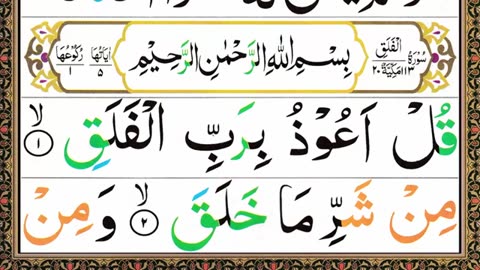 سُوْرَةُ الْفَلَقِ مَكِّيَّةٌ ١١٣ ٢٠ بِسْمِ اللهِ الرَّحْمٰنِ الرَّحِيْمِ اٰيَاتُهَا ٥ رُكُوْعُهَا ١
قُلْ اَعُوْذُ بِرَبِّ الْفَلَقِ ۙ ١
مِنْ شَرِّ مَا خَلَقَ ۙ ٢ وَ مِنْ